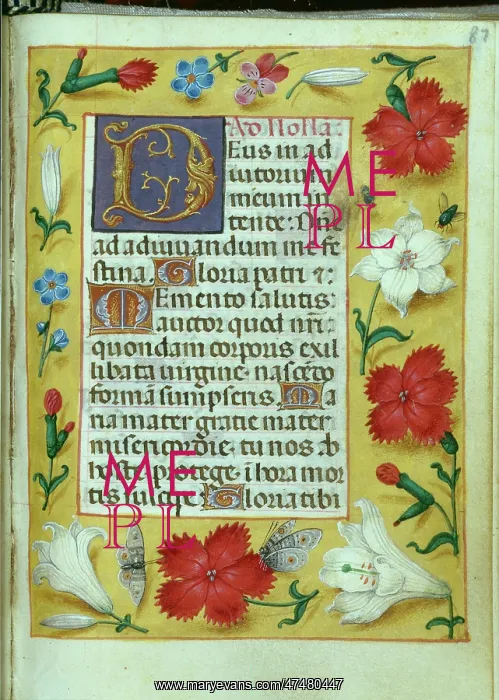 87
Ad Nonã:
Eus in ad
iutorium
meum in
tende: Dñe
ad adiuuandum me fe
stina. Gloria patri ⁊:
Memento salutis
auctor quod nr̃i:
quondam corporis exil
libata uirgine nascẽdo
formã sumpseris. Ma
ria mater gratie mater
misericordie. tu nos ab
hoste protege. ĩ hora mor
tis suscipe. Gloria tibi
ME
PL
ME
PL
www.maryevans.com/47480447